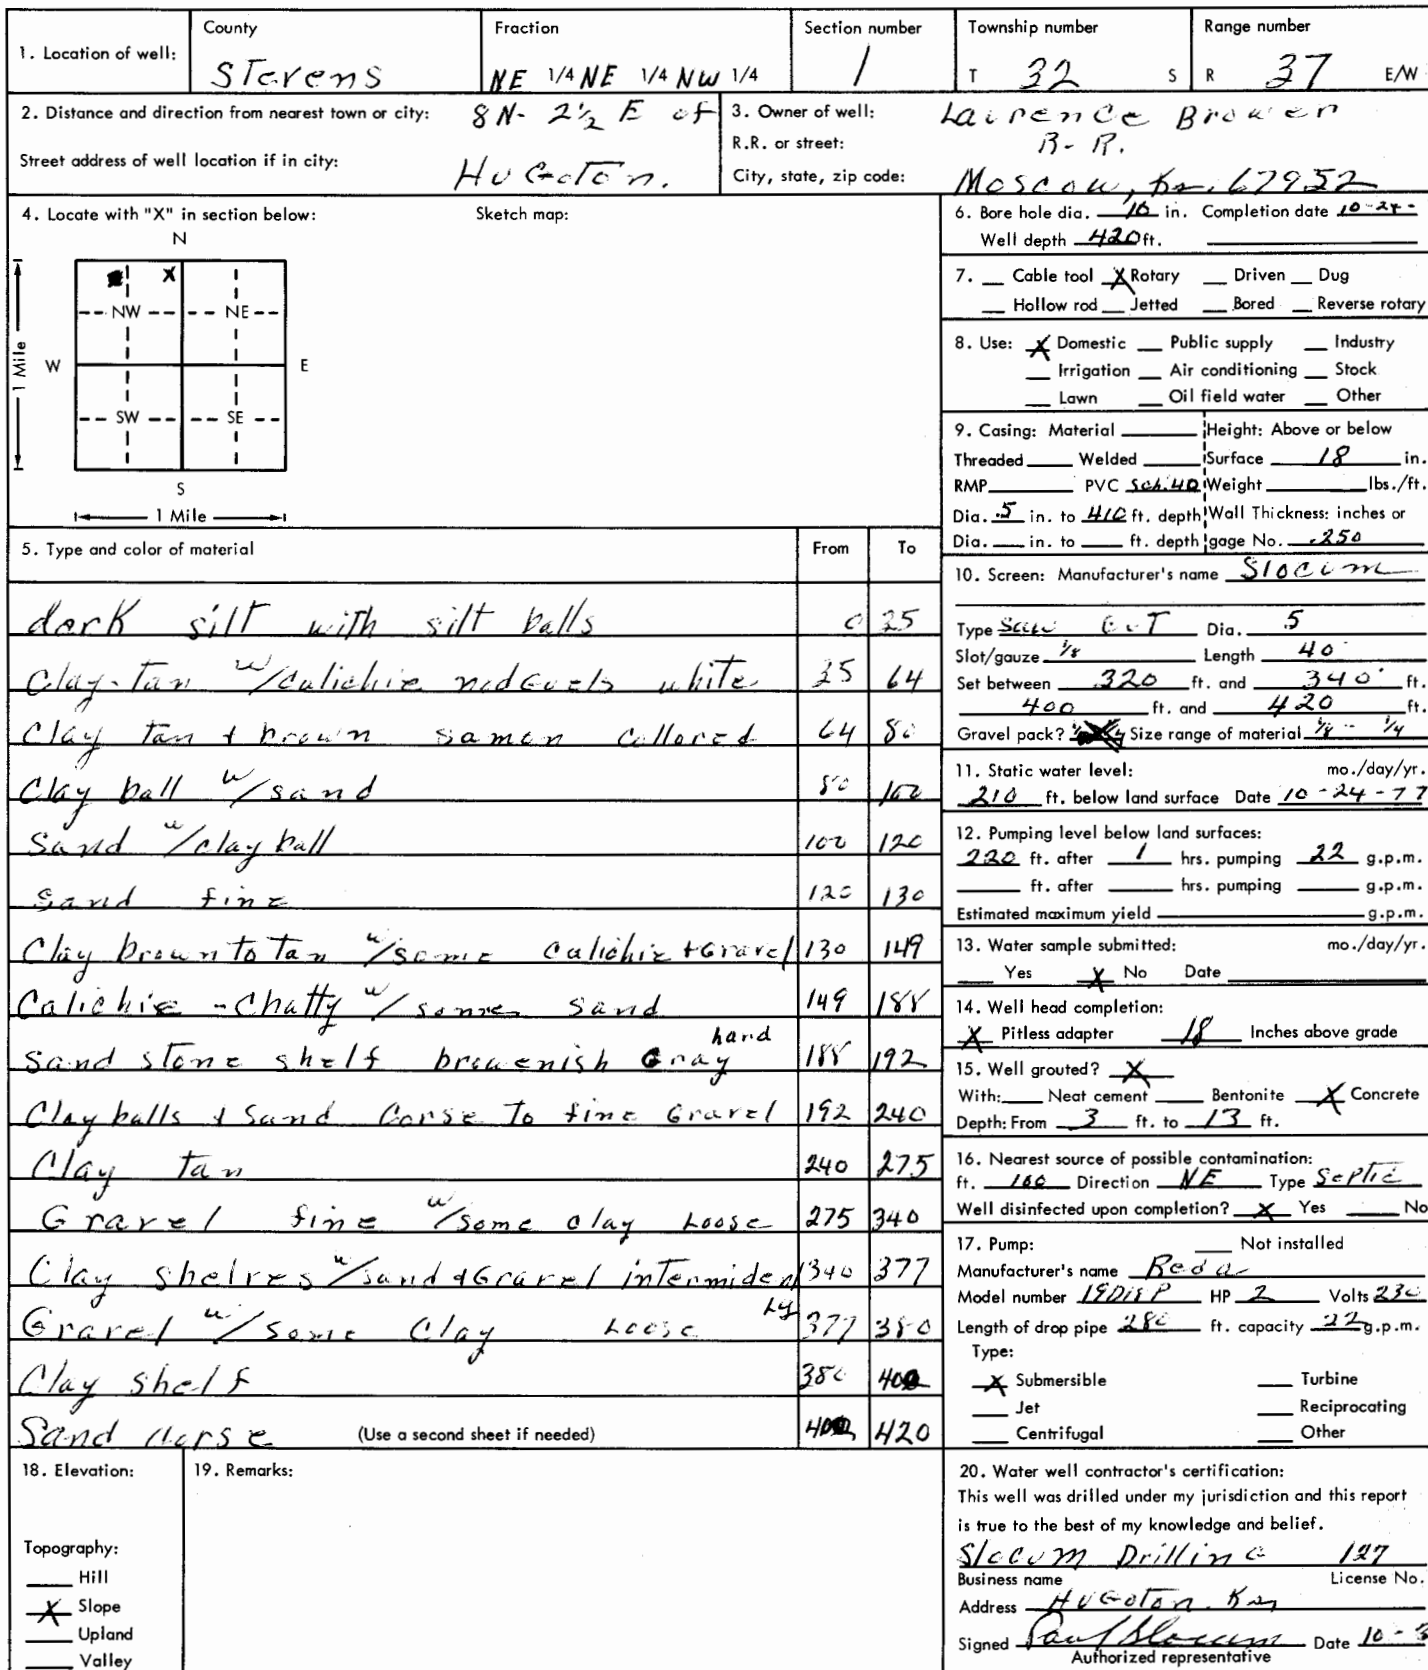 1. Location of well: County Stevens Fraction NE 1/4 NE 1/4 NW 1/4 Section number 1 Township number T 32 S Range number R 37 E/W
2. Distance and direction from nearest town or city: 8N- 2½ E of
Street address of well location if in city: HuGoTon.
3. Owner of well: Laurence Brower
R.R. or street: R-R.
City, state, zip code: Moscow, Ks. 67952
4. Locate with "X" in section below: Sketch map:
N
X
NW NE
1 Mile W E
SW SE
S
1 Mile
5. Type and color of material From To
dark silt with silt balls 0 25
Clay-Tan w/calichie nodGuels white 25 64
Clay Tan + brown samon collored 64 80
Clay ball w/sand 80 100
Sand w/clay ball 100 120
Sand fine 120 130
Clay brown to Tan w/some Calichie + Gravel 130 149
Calichie - Chatty w/some sand 149 188
Sand stone shelf browenish Gray hard 188 192
Clay balls + Sand Corse To fine Gravel 192 240
Clay Tan 240 275
Gravel fine w/some clay Loose 275 340
Clay shelves w/sand + Gravel intermidently 340 377
Gravel w/some Clay Loose 377 380
Clay shelf 380 400
Sand corse (Use a second sheet if needed) 400 420
6. Bore hole dia. 10 in. Completion date 10-24-
Well depth 420 ft.
7. Cable tool X Rotary Driven Dug
Hollow rod Jetted Bored Reverse rotary
8. Use: X Domestic Public supply Industry
Irrigation Air conditioning Stock
Lawn Oil field water Other
9. Casing: Material Height: Above or below
Threaded Welded Surface 18 in.
RMP PVC Sch. 40 Weight lbs./ft.
Dia. .5 in. to 410 ft. depth Wall Thickness: inches or
Dia. in. to ft. depth gage No. .250
10. Screen: Manufacturer's name Slocum
Type Saw CuT Dia. 5
Slot/gauze 1/8 Length 40'
Set between 320 ft. and 340' ft.
400 ft. and 420 ft.
Gravel pack? Size range of material 1/8 - 1/4
11. Static water level: mo./day/yr.
210 ft. below land surface Date 10-24-77
12. Pumping level below land surfaces:
220 ft. after 1 hrs. pumping 22 g.p.m.
ft. after hrs. pumping g.p.m.
Estimated maximum yield g.p.m.
13. Water sample submitted: mo./day/yr.
Yes X No Date
14. Well head completion:
X Pitless adapter 18 Inches above grade
15. Well grouted? X
With: Neat cement Bentonite X Concrete
Depth: From 3 ft. to 13 ft.
16. Nearest source of possible contamination:
ft. 100 Direction NE Type Septic
Well disinfected upon completion? X Yes No
17. Pump: Not installed
Manufacturer's name Reda
Model number HP 2 Volts 230
Length of drop pipe 280 ft. capacity 22 g.p.m.
Type:
X Submersible Turbine
Jet Reciprocating
Centrifugal Other
18. Elevation:
Topography:
Hill
X Slope
Upland
Valley
19. Remarks:
20. Water well contractor's certification:
This well was drilled under my jurisdiction and this report
is true to the best of my knowledge and belief.
Slocum DrillinG 127
Business name License No.
Address HuGoTon Kan
Signed Paul Slocum Date 10-
Authorized representative